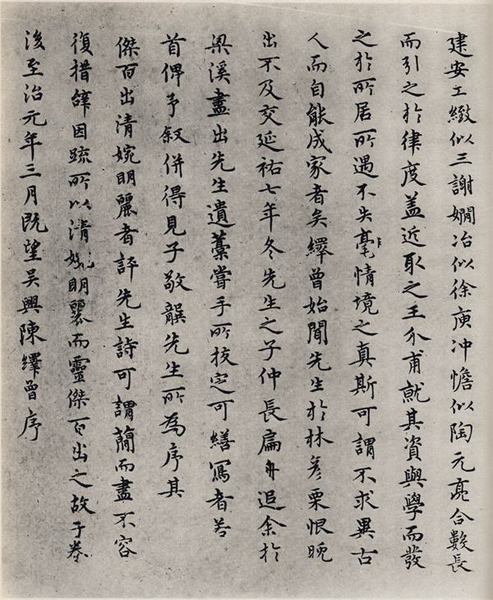 建安工緻似三謝嫺冶似徐庾冲憺似陶元亮合數長
而引之於律度盖近取之王介甫就其資與學而發
之於所居所遇不失毫情境之真斯可謂不求異古
人而自能成家者矣繹曾始聞先生於林彥栗恨晚
出不及交延祐七年冬先生之子仲長扁舟追余於
梁溪盡出先生遺藁嘗手所校定可繕寫者若
首俾予叙併得見子敬龔先生所為序其
傑百出清婉明麗者評先生詩可謂蕳而盡不容
復措辭因疏所以清婉明麗而靈傑百出之故于卷
後至治元年三月既望吳興陳繹曾序